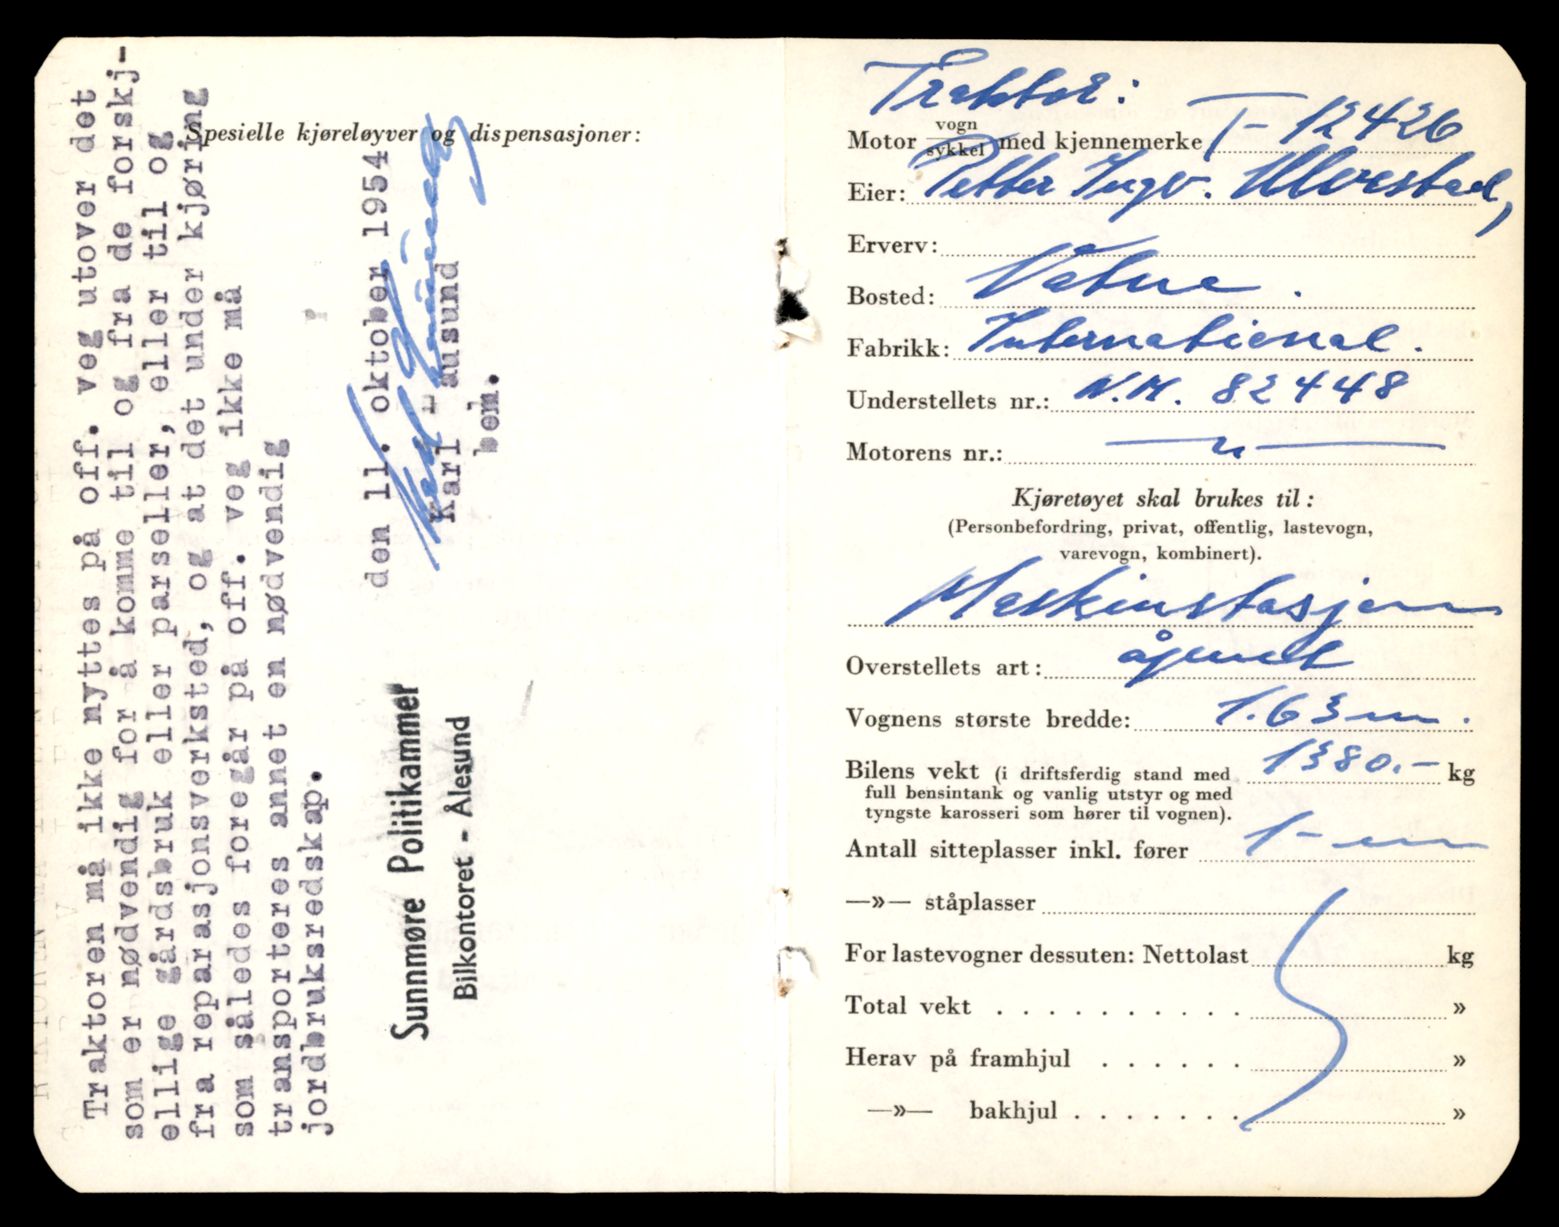 Spesielle kjøreløyver og dispensasjoner:
Traktoren må ikke nyttes på off. veg utover det
som er nødvendig for å komme til og fra de forskj-
ellige gårdsbruk eller parseller, eller til og
fra reparasjonsverksted, og at det under kjøring
som således foregår på off. veg ikke må
transporteres annet en nødvendig
jordbruksredskap.
den 11. oktober 1954
Karl ausund
bem.
Sunnmøre Politikammer
Bilkontoret - Ålesund
Traktor:
Motor vogn sykkel med kjennemerke T-12426
Eier: Petter Ingv. Ulvestad,
Erverv:
Bosted: Vatne.
Fabrikk: International.
Understellets nr.: N.M. 82448
Motorens nr.: — " —
Kjøretøyet skal brukes til:
(Personbefordring, privat, offentlig, lastevogn,
varevogn, kombinert).
Maskinstasjon
Overstellets art: åpent
Vognens største bredde: 1.63 m.
Bilens vekt (i driftsferdig stand med 1380.- kg
full bensintank og vanlig utstyr og med
tyngste karosseri som hører til vognen).
Antall sitteplasser inkl. fører 1 - en
—»— ståplasser
For lastevogner dessuten: Nettolast kg
Total vekt . . . . . . . . . . »
Herav på framhjul . . . . . . »
—»— bakhjul . . . . . . . »